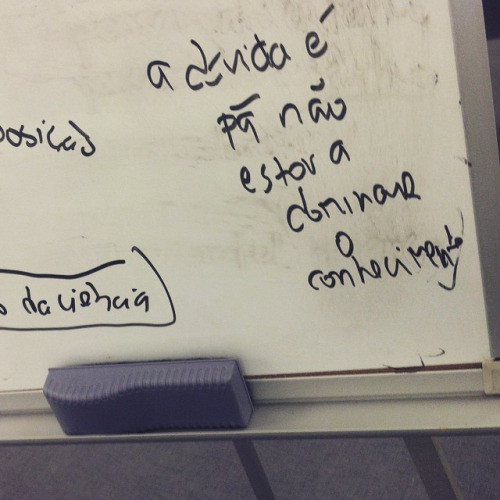 a dúvida é
pã não
estou a
dominar
o
conhecimento
da ciência